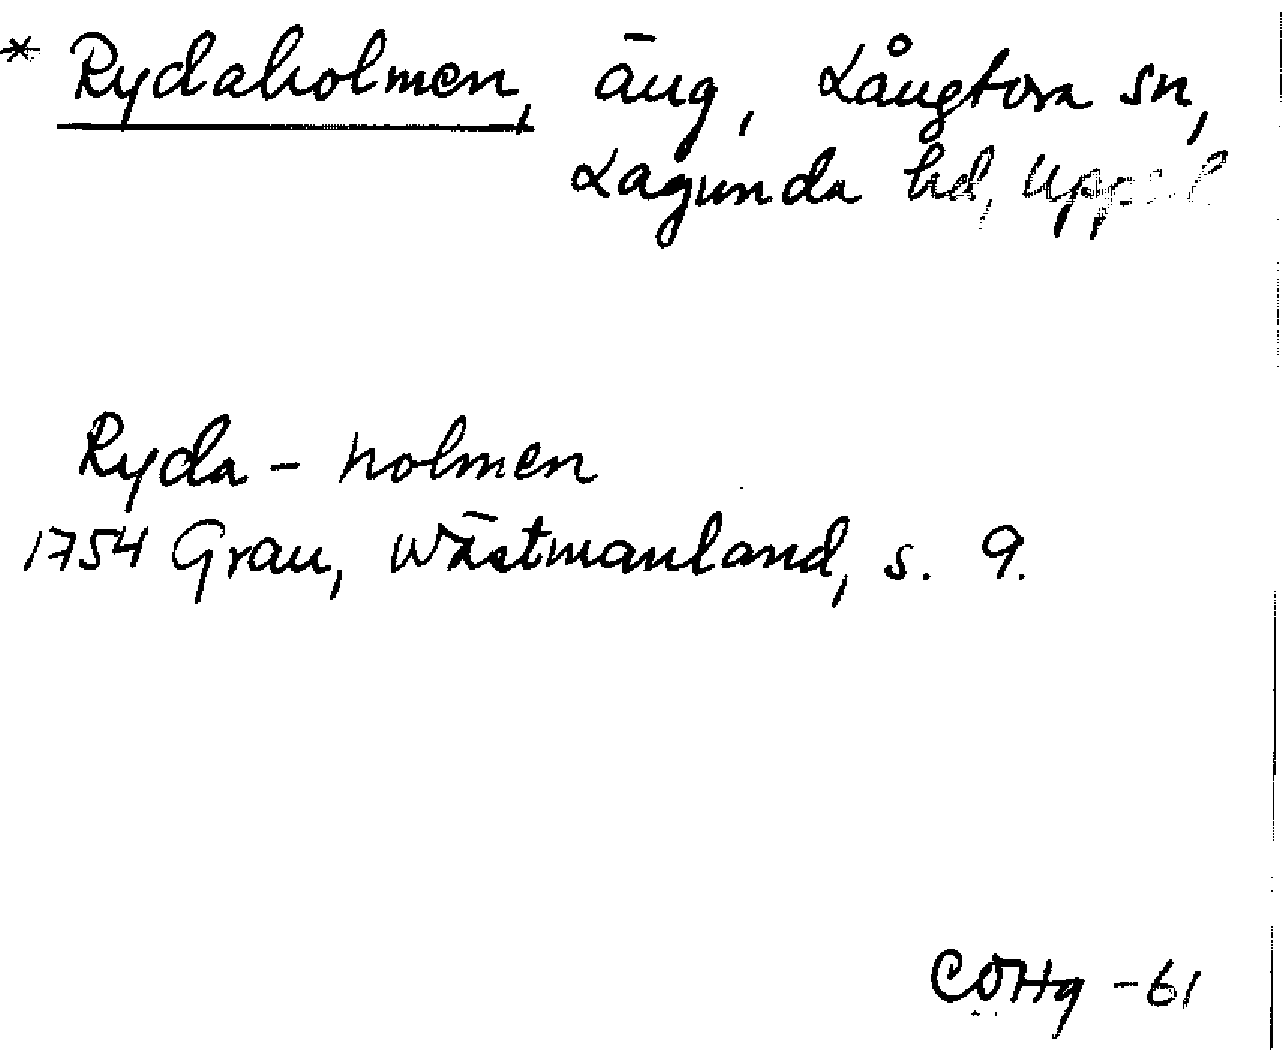 * Rydaholmen, äng, Långtora sn,
Lagunda hd, Uppsl
Ryda - holmen
1754 Grau, Wästmanland, s. 9.
CÖHg -61